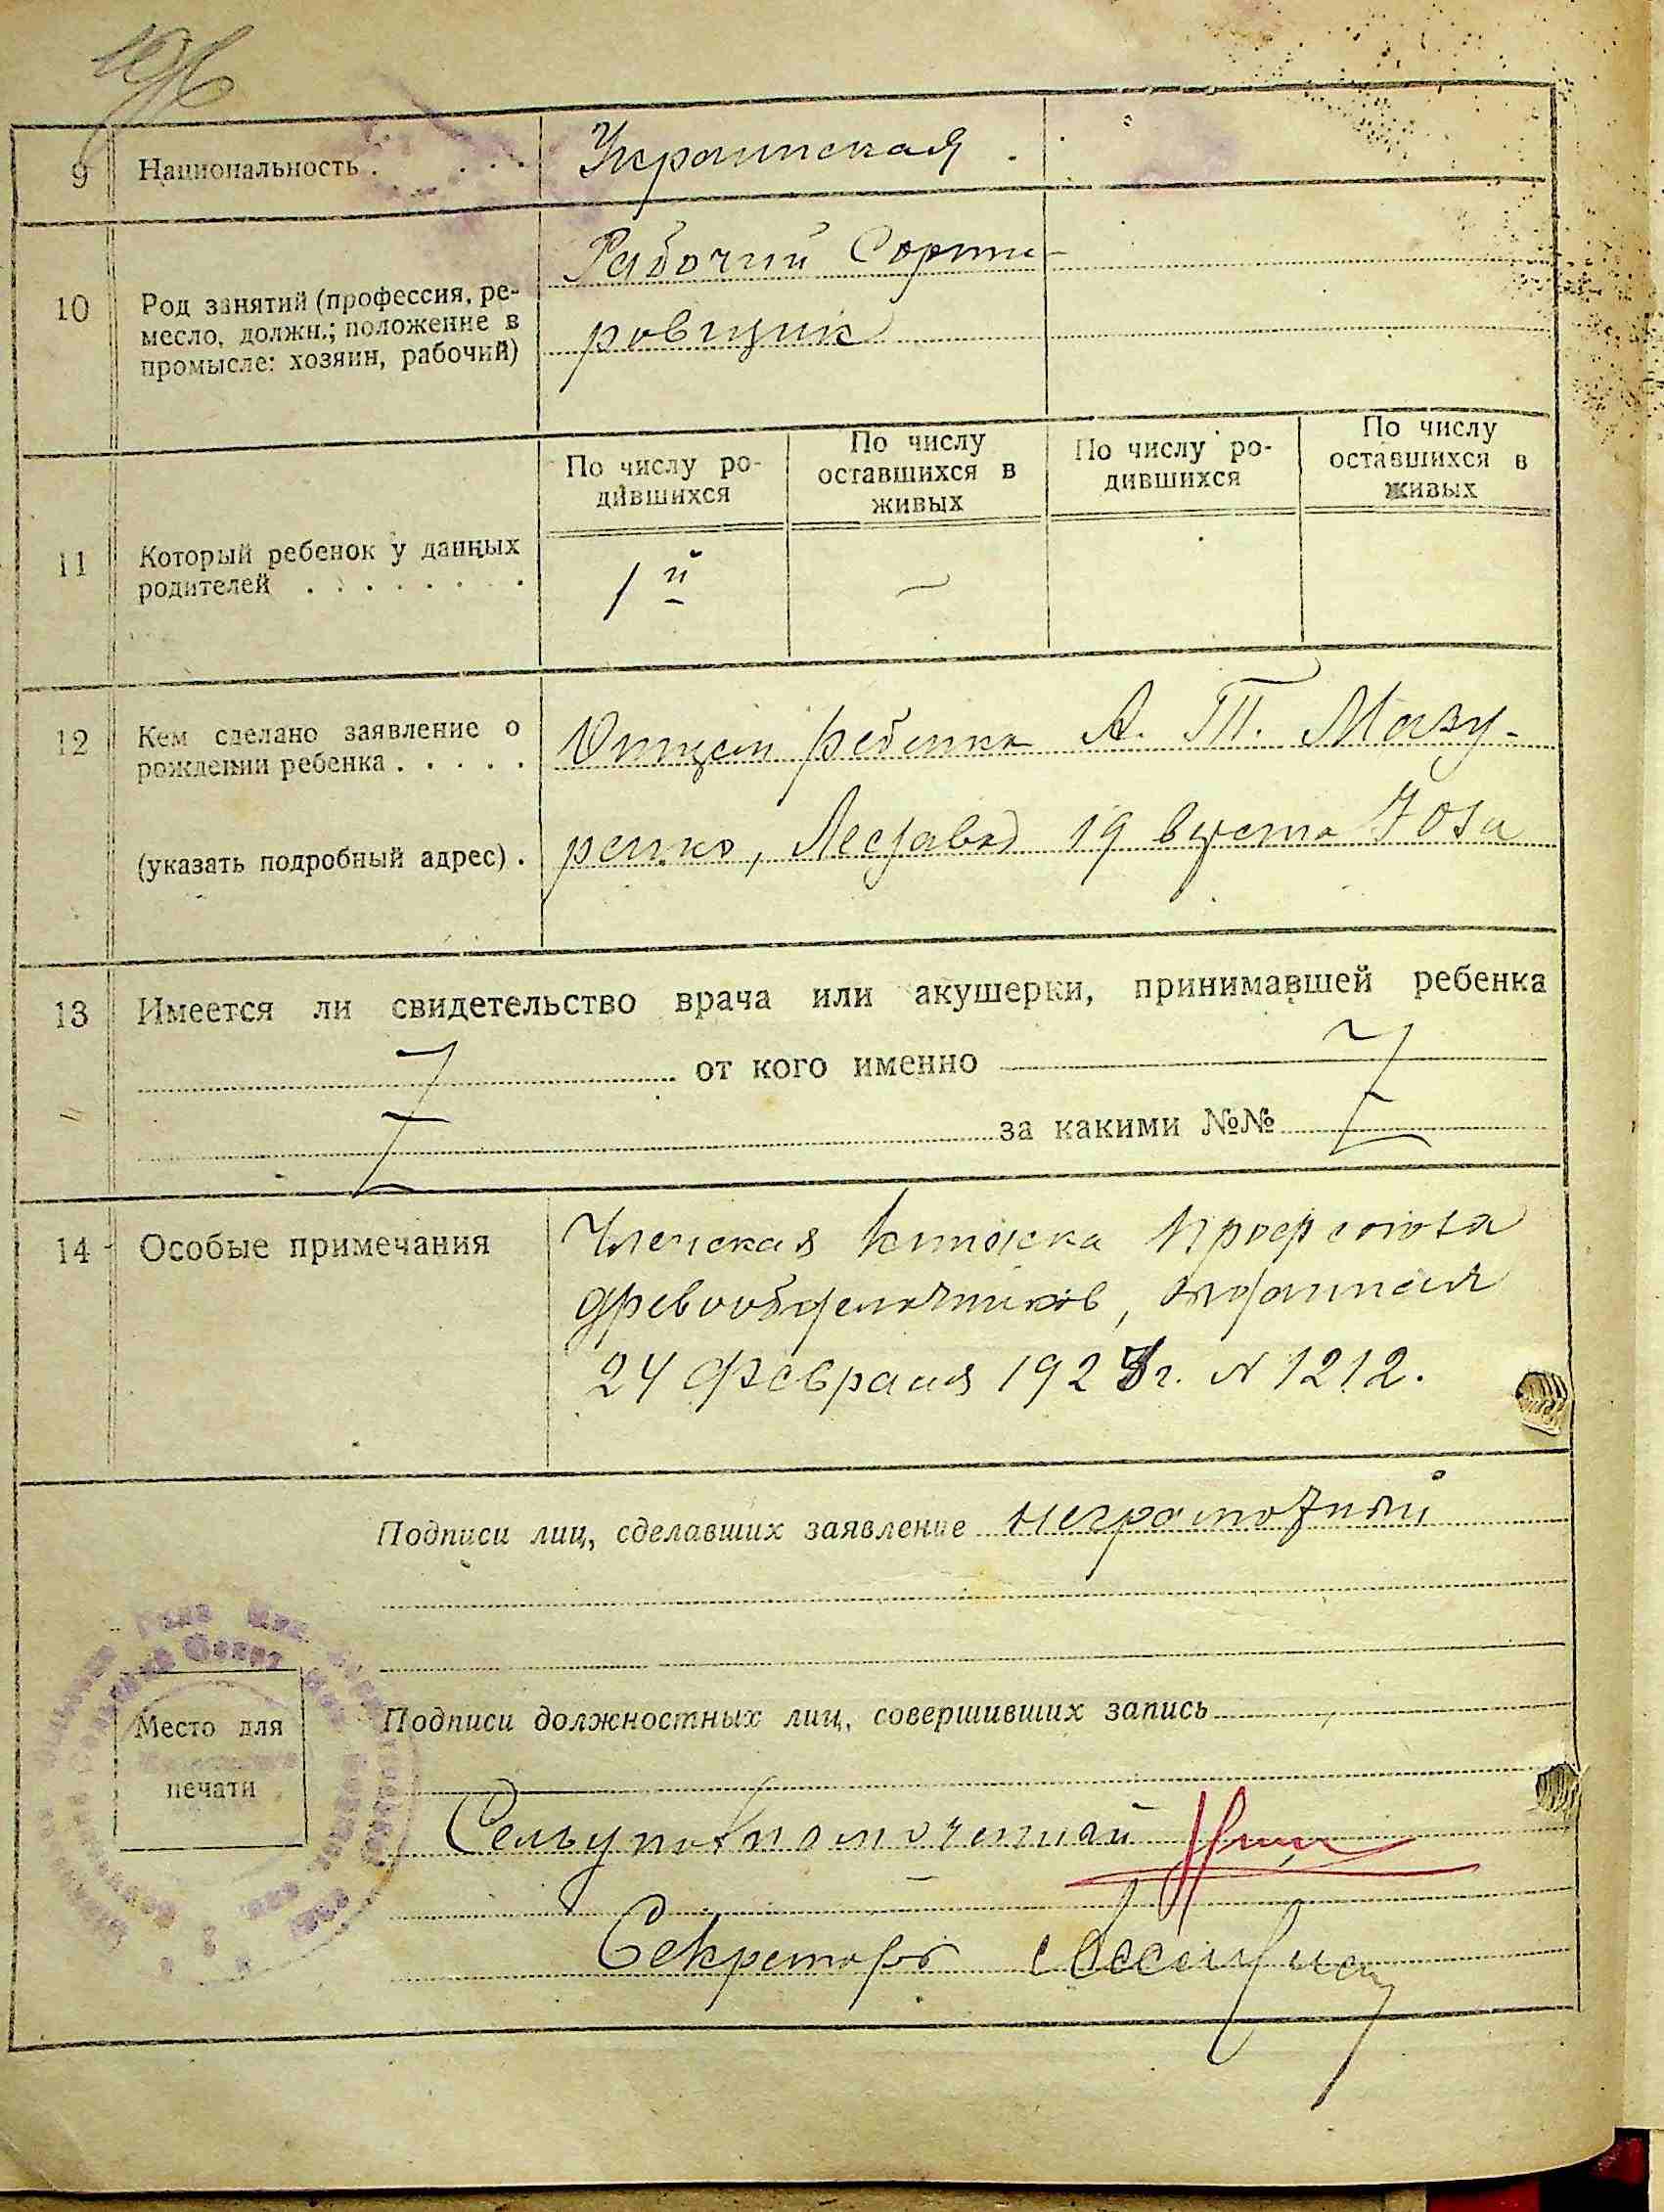 9 Национальность . . . . Украинская .
10 Род занятий (профессия, ре-
месло, должн.; положение в
промысле: хозяин, рабочий)
Рабочий Сорти-
ровщик
11 Который ребенок у данных
родителей . . . . . . . .
По числу ро-
дившихся
По числу
оставшихся в
живых
По числу ро-
дившихся
По числу
оставшихся в
живых
1й —
12 Кем сделано заявление о
рождении ребенка . . . . .
(указать подробный адрес) .
Отцом ребенка А. Т. Мазу-
ренко, Лесзавод 19
13 Имеется ли свидетельство врача или акушерки, принимавшей ребенка
от кого именно
за какими №№
14 Особые примечания
Членская книжка Профсоюза
древообделочников, выданная
24 февраля 1923г. N 1212.
Подписи лиц, сделавших заявление неграмотный
Подписи должностных лиц, совершивших запись
Место для
печати
Сельуполномоченный
Секретарь